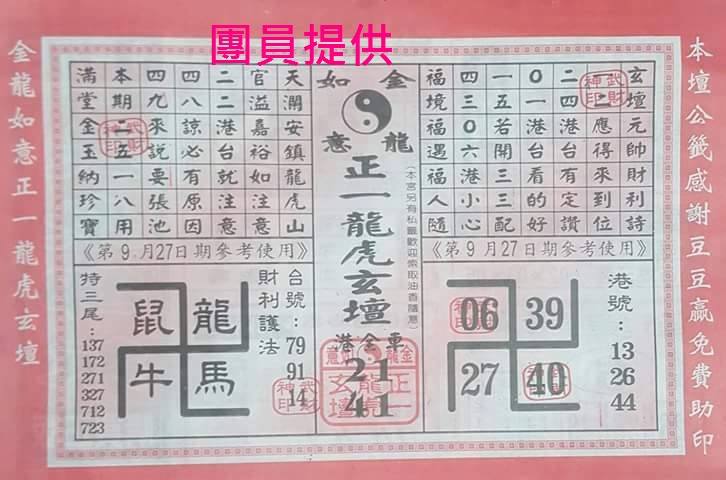 團員提供
本壇公籤感謝豆豆贏免費助印
玄壇元帥財利詩
二應得來到位
二四港台有定讚
0一港台看的好
一五若開三三配
四三0六港小心
福境福遇福人隨
武財神印
《第9月27日期參考使用》
港號:
13
26
44
06 39
27 40
金龍如意
正一龍虎玄壇
(本宮另有私籤歡迎索取油香隨意)
港金車
21
41
天瀾安鎮龍虎山
官溢嘉裕如注意
二二港台就注意
四八諒必有原因
四九來說要張池
本期二五一八用
滿堂金玉納珍寶
《第9月27日期參考使用》
台號:
79
91
14
財利護法
鼠 龍
牛 馬
持三尾:
137
172
271
327
712
723
金龍如意正一龍虎玄壇